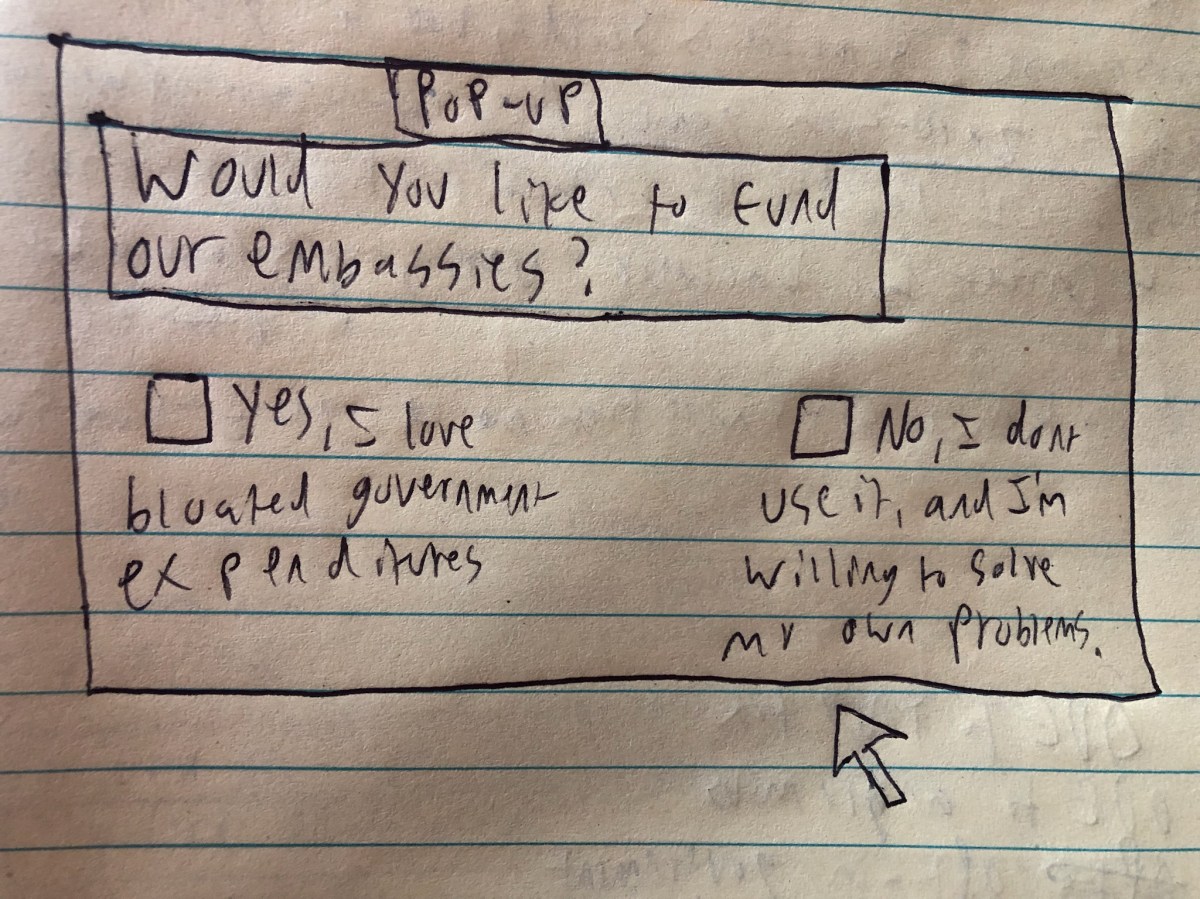 POP-UP
Would you like to Fund
our embassies?
Yes, I love
bloated government
expenditures
No, I dont
use it, and I'm
willing to solve
my own problems.